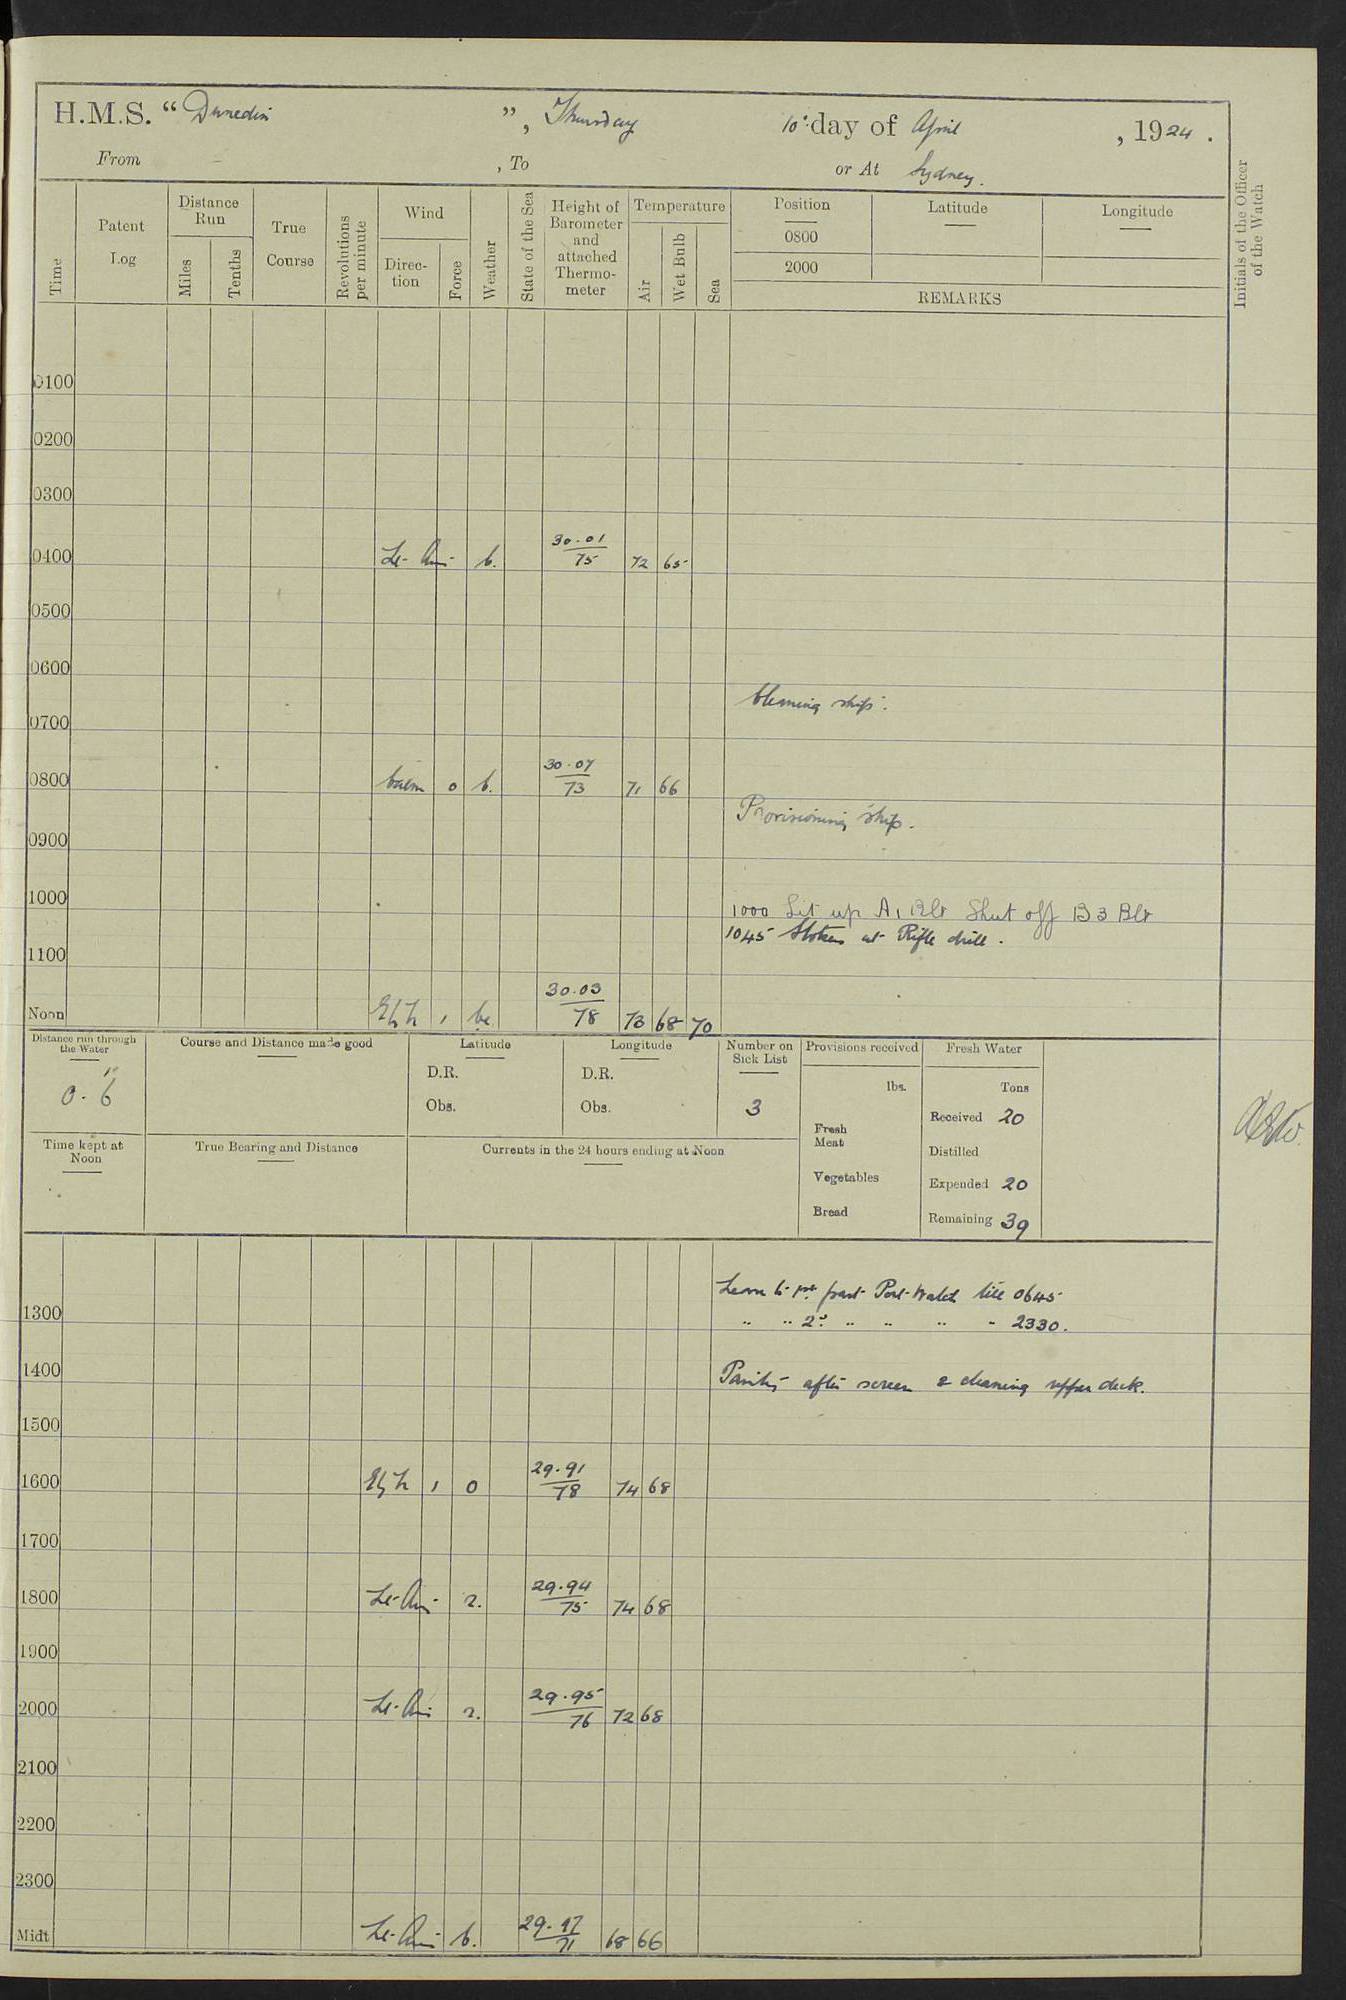 H.M.S. “ Dunedin ”, Thursday 10th day of April , 1924 .
From — , To or At Sydney.
Time
Patent Log
Distance Run
Miles
Tenths
True Course
Revolutions per minute
Wind
Direction
Force
Weather
State of the Sea
Height of Barometer and attached Thermometer
Temperature
Air
Wet Bulb
Sea
Position
0800
2000
Latitude
Longitude
REMARKS
Initials of the Officer of the Watch
0100
0200
0300
0400 Lt. Airs b. 30.01 75 72 65
0500
0600
Cleaning ship.
0700
0800 Calm 0 b. 30.07 73 71 66
Provisioning ship.
0900
1000 1000 Lit up A1 Blr Shut off B3 Blr
1045 Stokers at Rifle drill.
1100
Noon 1 bc 30.03 78 73 68 70
Distance run through the Water
0. 6
Course and Distance made good
Latitude
D.R.
Obs.
Longitude
D.R.
Obs.
Number on Sick List
3
Provisions received
lbs.
Fresh Meat
Vegetables
Bread
Fresh Water
Tons
Received 20
Distilled
Expended 20
Remaining 39
Time kept at Noon
True Bearing and Distance
Currents in the 24 hours ending at Noon
Leave to 1st part Port Watch till 0645
" " 2d " " " " 2330.
1300
1400 after screen & cleaning upper deck.
1500
1600 1 0 29.91 78 74 68
1700
1800 Lt. Airs 29.94 75 74 68
1900
2000 Lt. Airs 29.95 76 72 68
2100
2200
2300
Midt Lt. Airs b. 71 68 66